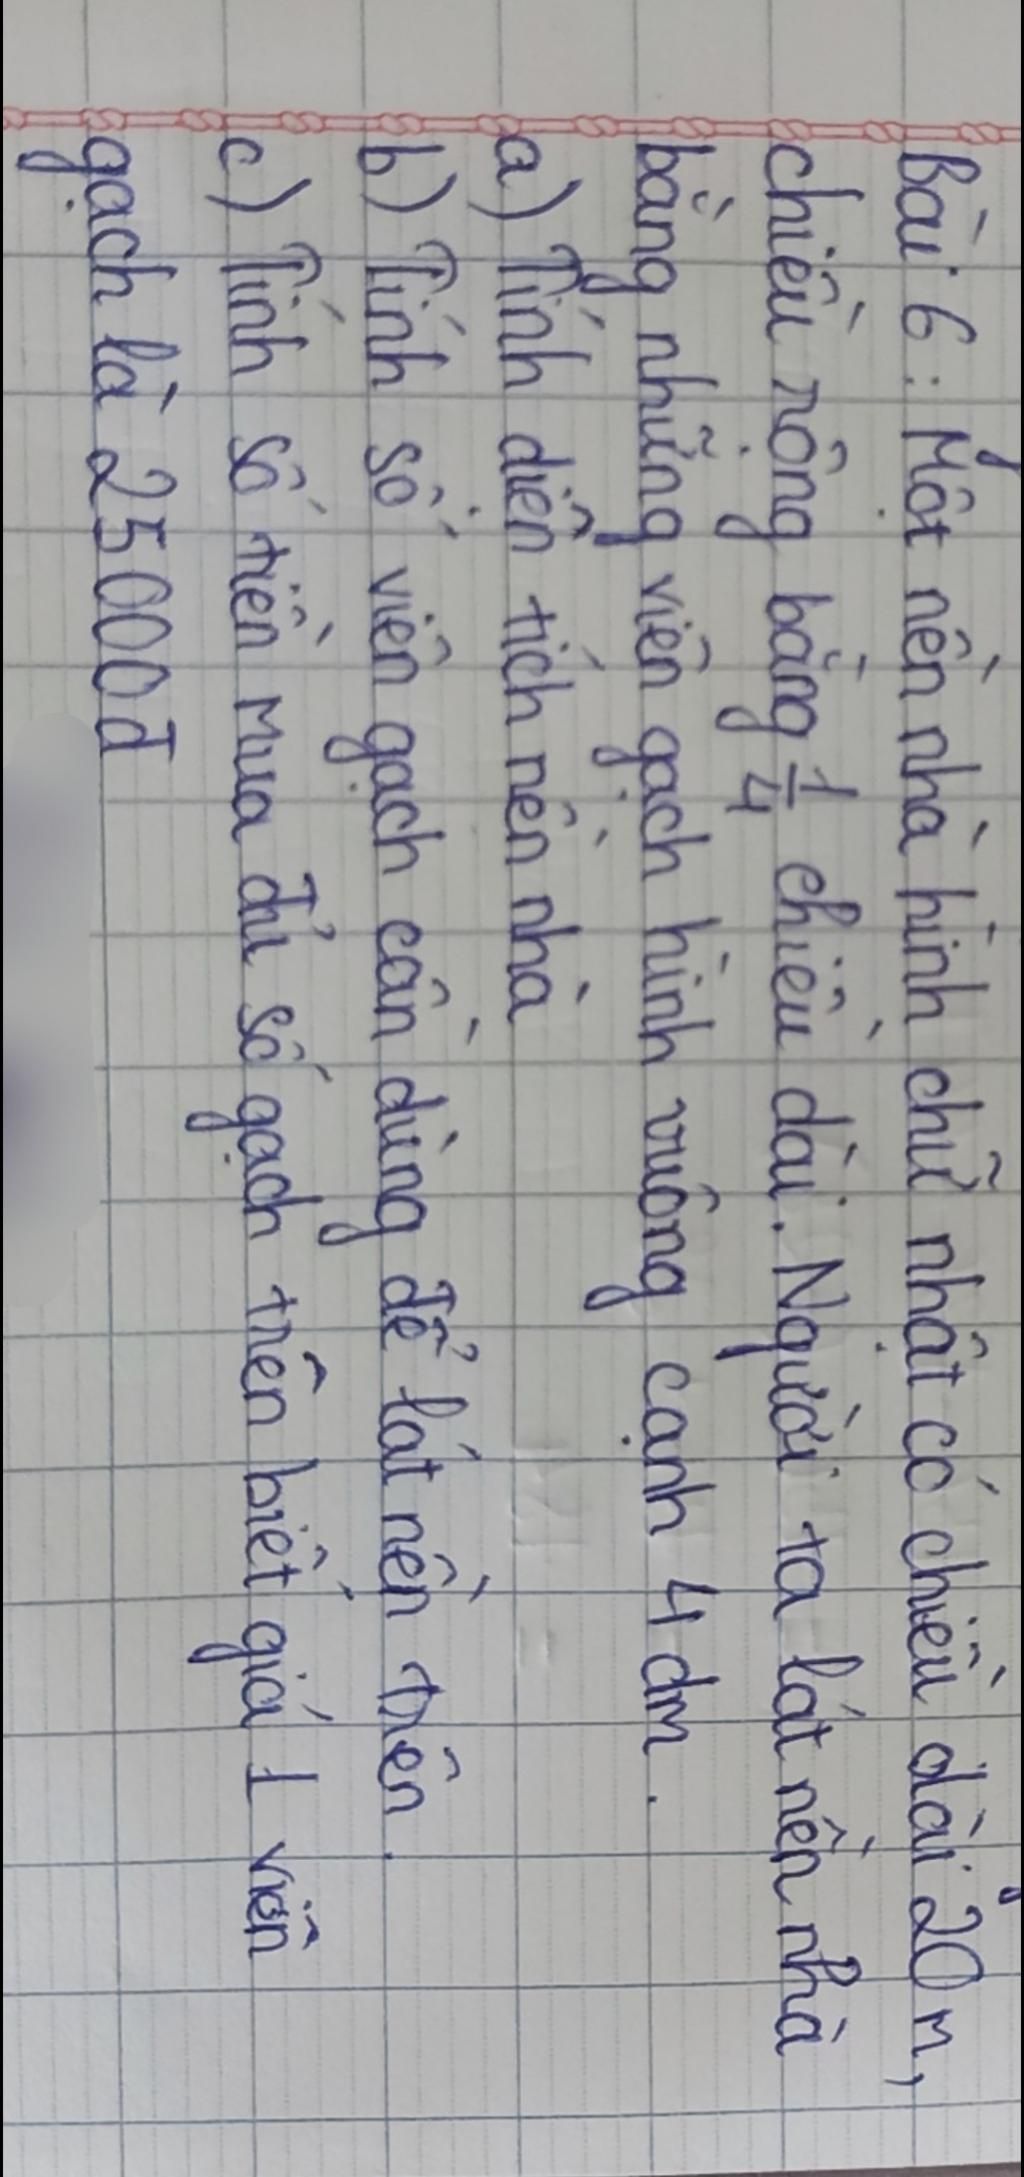 Bài 6: Một nền nhà hình chữ nhật có chiều dài 20m,
chiều rộng bằng 1/4 chiều dài. Người ta lát nền nhà
bằng những viên gạch hình vuông cạnh 4 dm.
a) Tính diện tích nền nhà
b) Tính số viên gạch cần dùng để lát nền trên.
c) Tính số tiền mua đủ số gạch trên biết giá 1 viên
gạch là 25000đ